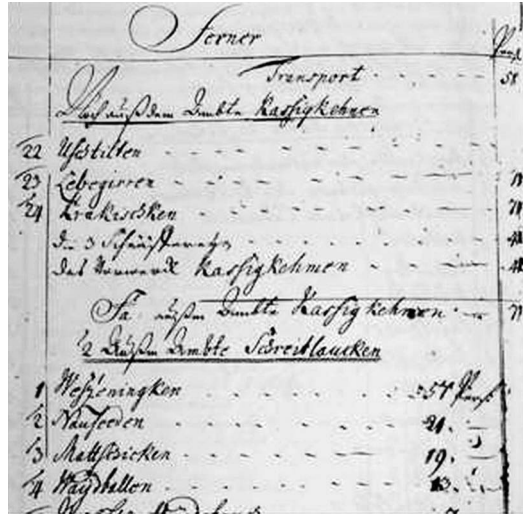 Ferner
Transport - - - 58
Noch außdem Ambte Kassigkehmen
22 Uschtilten - - - - - - -
23 Lebegirren - - - - - - -
24 Krakischken - - - - - -
die 3
das Vorwerck Kassigkehmen - - - -
Sa. außm Ambte Kassigkehmen - -
2 Außm Ambte Schreitlaucken
1 Weszeningken - - - - - 57 Pers
2 Nauseeden - - - - - 21. -
3 Mattschicken - - - - - 19. -
4 Waydballen - - - - - 13. -